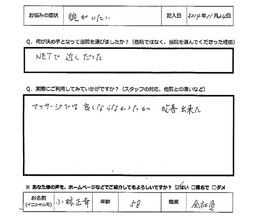 お悩みの症状 腕がいたい 記入日
Q. 何が決め手となって当院を選びましたか?(他院ではなく、当院を選んでくださった理由)
NETで 近くだった
Q. 実際にご利用してみていかがですか?(スタッフの対応、他院との違いなど)
マッサージでは 良くならなかったが 改善出来た
※ あなた様の声を、ホームページなどでご紹介してもよろしいですか? ☑はい □匿名で □ダメ
お名前 (イニシャル可) 小林正幸 年齢 58 職業 会社員